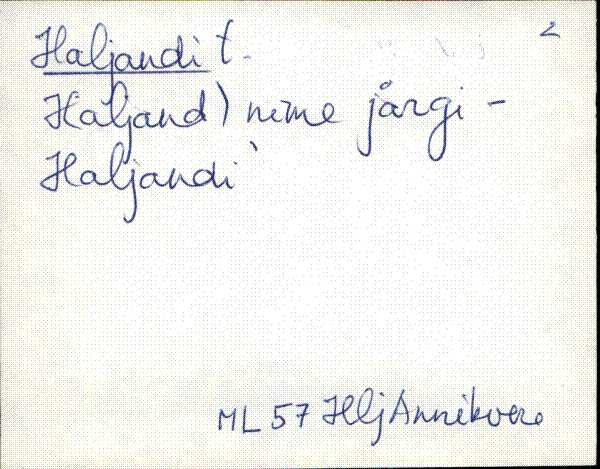 2
Haljandi t.
Haljand) nime järgi -
Haljandi
ML 57 HljAnnikvere